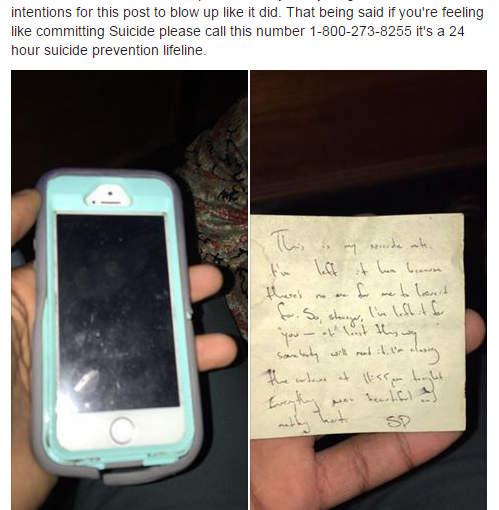 intentions for this post to blow up like it did. That being said if you're feeling
like committing Suicide please call this number 1-800-273-8255 it's a 24
hour suicide prevention lifeline.
This is my suicide note.
I've left it here because
there's no one for me to leave it
for. So, stranger, I've left it for
you — at least this way
somebody will read it. I'm closing
the at 11:55pm tonight
Everything was beautiful and
nothing hurt. SP